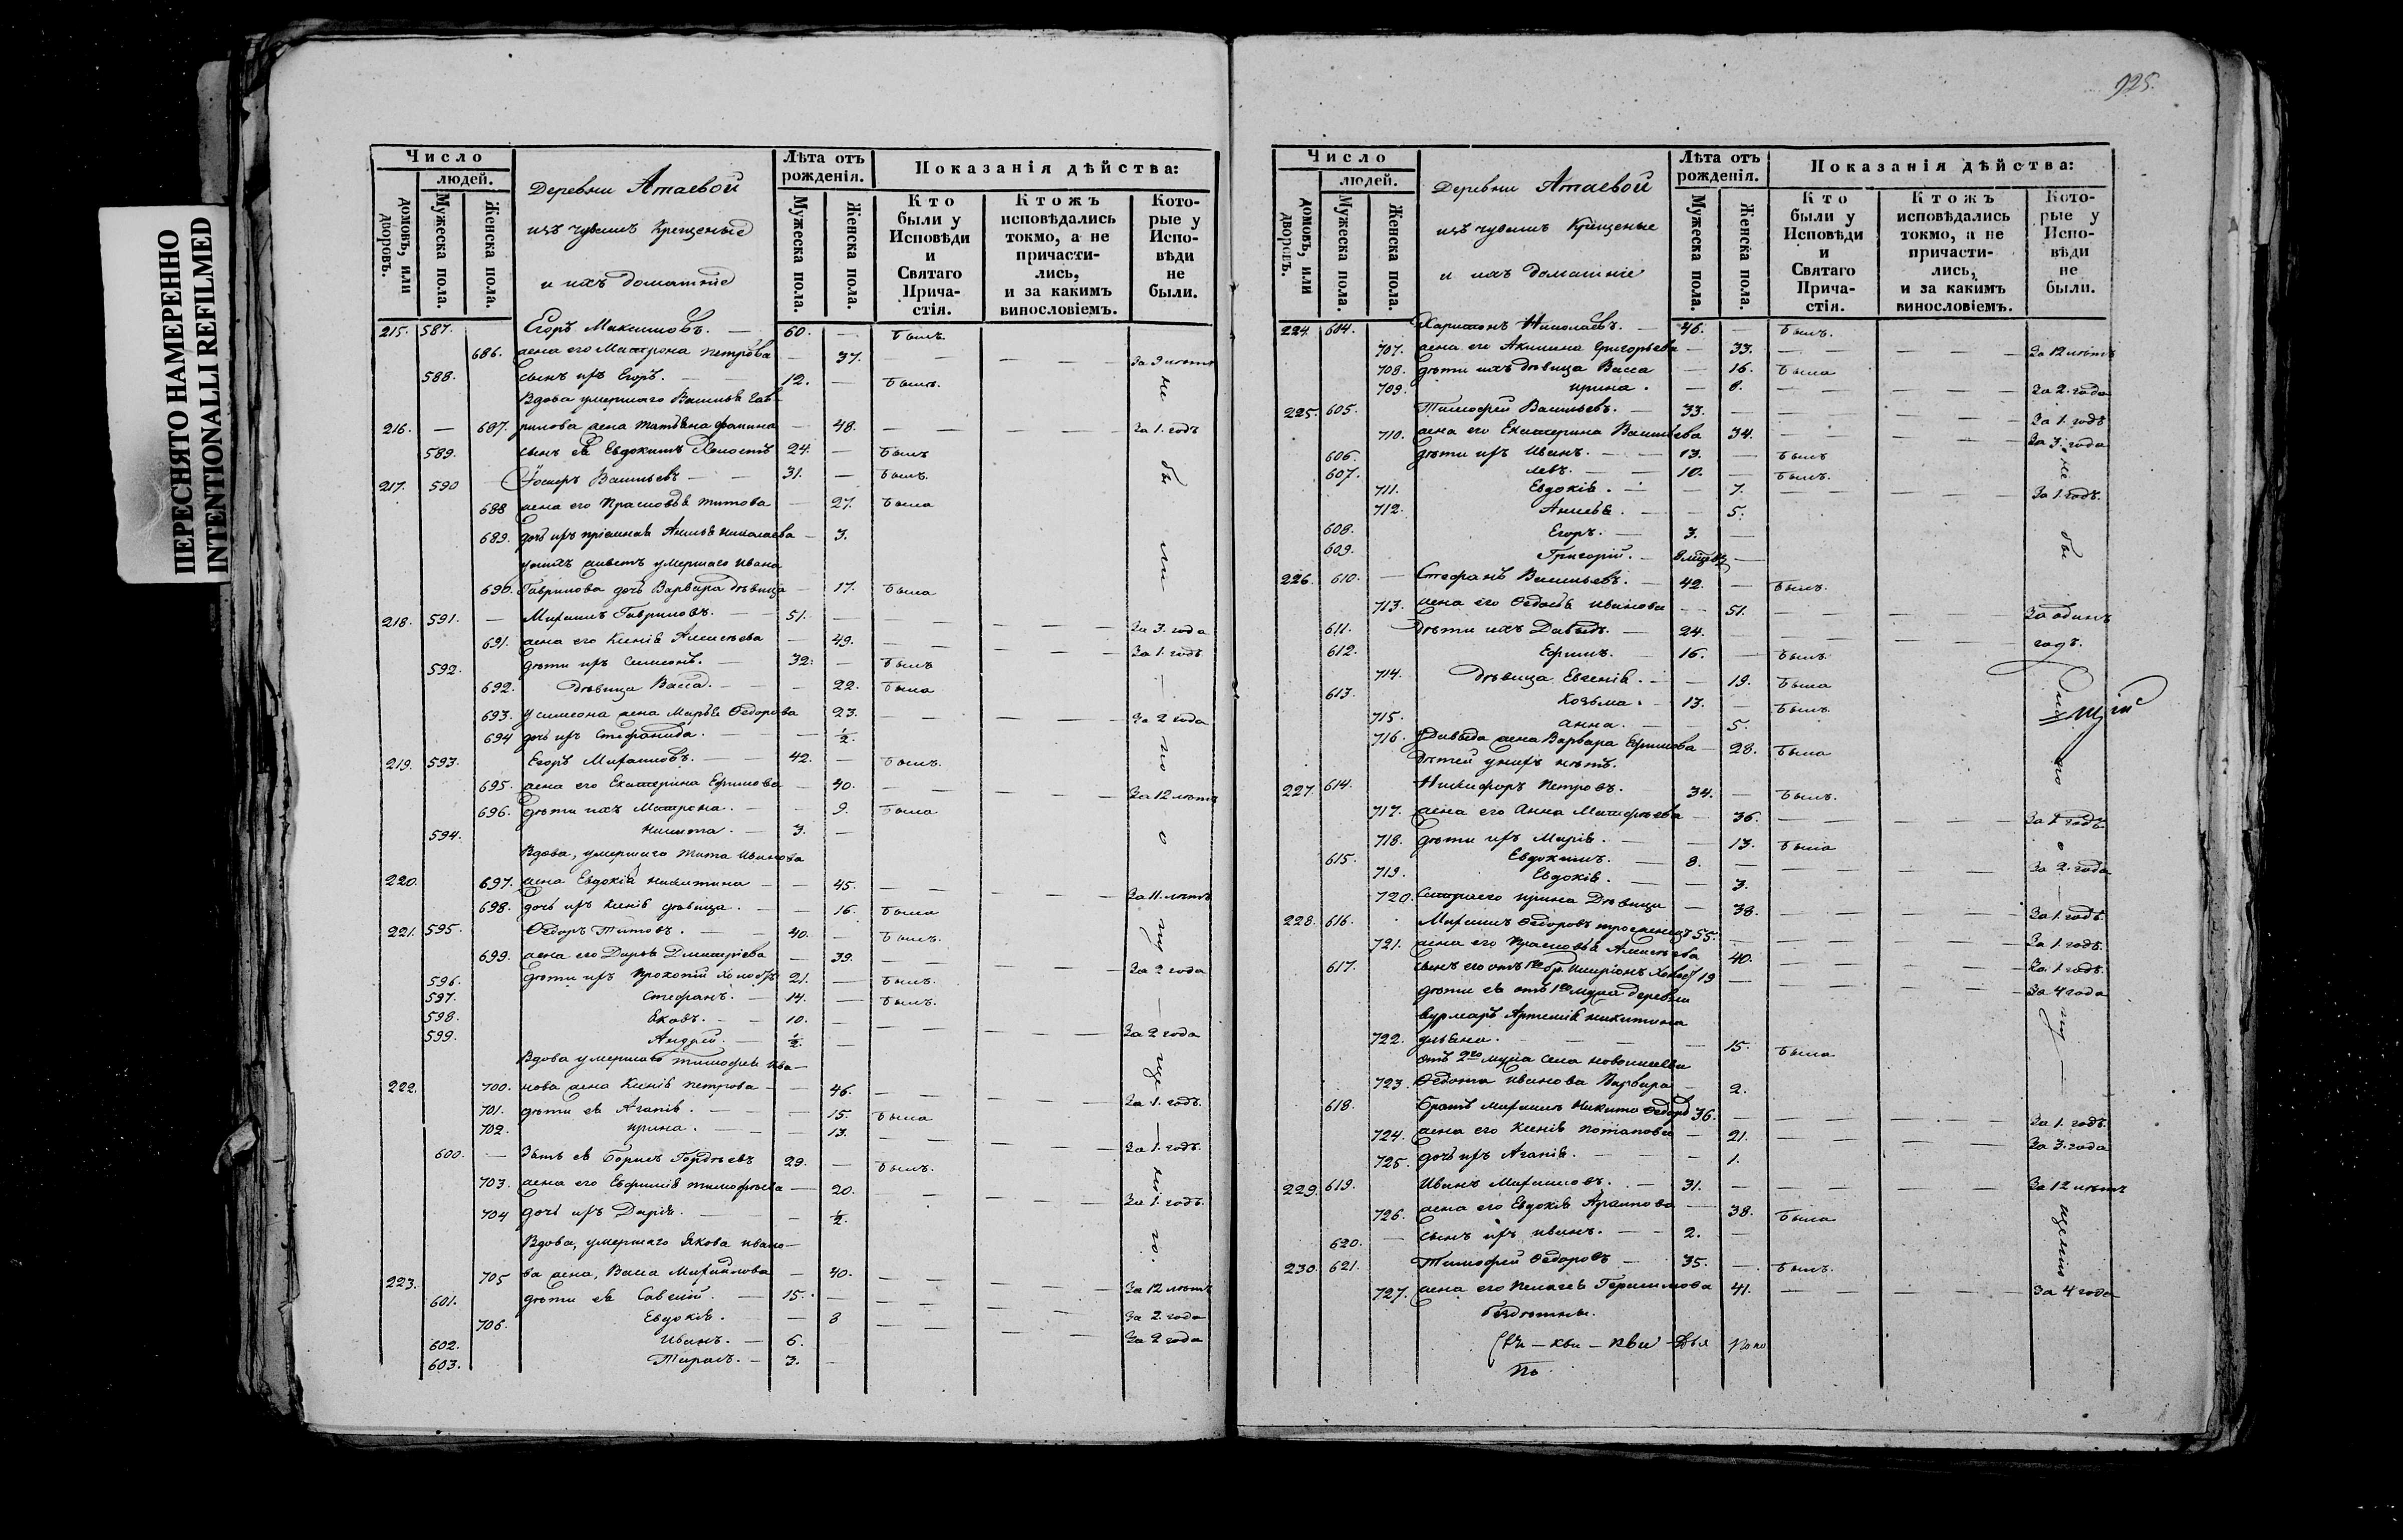 ПЕРЕСНЯТО НАМЕРЕННО
INTENTIONALLI REFILMED
Число
людей.
домовъ, или дворовъ.
Мужеска пола.
Женска пола.
Деревни Атаевой
изъ чувашъ Крещеные
и ихъ домашніе
Лѣта отъ рожденія.
Мужеска пола.
Женска пола.
Показанія дѣйства:
Кто были у Исповѣди и Святаго Прича-стія.
Ктожъ исповѣдались токмо, а не причасти-лись, и за какимъ винословіемъ.
Кото-рые у Испо-вѣди не были.
215. 587. Егоръ Максимовъ. — 60. — былъ
686. жена его Матрона Петрова — 37. — — — За 9 лѣтъ
588. сынъ ихъ Егоръ. — 12. — былъ.
Вдова умершаго Василья Гав-
216. — 687. рилова жена Татьяна — 48. — — — За 1. годъ
589. сынъ ея Евдокимъ Холостъ 24. — былъ
217. 590 Васильевъ — 31. — былъ.
688 жена его Прасковья Титова — 27. была
689. дочь ихъ пріемная Николаева — 3.
у нихъ живетъ умершаго Ивана
690. Гаврилова дочь Варвара дѣвица — 17. была
218. 591. — Михаилъ Гавриловъ. — 51. — — — За 3. года
691. жена его Ксенія Алексѣева — 49. — — — За 1. годъ
592. дѣти ихъ Симеонъ. — 32. — былъ
692. Дѣвица Васса. — — 22. была
693. У Симеона жена Марья Ѳедорова 23. — — — За 2 года
694 дочь ихъ Стефанида. — — ½.
219. 593. Егоръ Михайловъ. — 42. — былъ.
695. жена его Екатерина Ефимова — 40. — — — За 12 лѣтъ
696. дѣти ихъ Матрона. — — 9. была
594. Никита. — 3. —
Вдова, умершаго Тита Иванова
220. 697. жена Евдокія Никитина — 45. — — — За 11 лѣтъ
698. дочь ихъ Ксенія дѣвица. — — 16. была
221. 595. Ѳедоръ Титовъ. — 40. — былъ.
699. жена его Дарья Дмитріева — 39. — — — За 2 года
596. дѣти ихъ Прокопій Холостъ 21. — былъ.
597. Стефанъ. — 14. — былъ.
598. Яковъ. — 10. — — — За 2 года
599. Андрей. — ½. —
Вдова умершаго Тимофея Ива-
222. 700. нова жена Ксенія Петрова — 46. — — — За 1. годъ.
701. дѣти ея Агапія. — — 15. была
702. Ирина. — — 13. — — — За 1. годъ.
600. — Зять ея Борисъ Гордѣевъ 29. — былъ.
703. жена его Евфимія Тимофѣева — 20. — — — За 1. годъ.
704 дочь ихъ Дарія. — — ½.
Вдова, умершаго Якова Ивано-
223. 705 ва жена, Васса Михайлова — 40. — — — За 12 лѣтъ
601. дѣти ея Савелій. — 15. — — — За 2. года
706. Евдокія. — — 8 — — — За 2 года
602. Иванъ. — 6.
603. Тарасъ. — 3. —
925.
Число
людей.
домовъ, или дворовъ.
Мужеска пола.
Женска пола.
Деревни Атаевой
изъ чувашъ Крещеные
и ихъ домашніе
Лѣта отъ рожденія.
Мужеска пола.
Женска пола.
Показанія дѣйства:
Кто были у Исповѣди и Святаго Прича-стія.
Ктожъ исповѣдались токмо, а не причасти-лись, и за какимъ винословіемъ.
Кото-рые у Испо-вѣди не были.
224. 604. Харитонъ Николаевъ. — 46. — былъ.
707. жена его Акилина Григорьева — 33. — — — За 12 лѣтъ
708. дѣти ихъ дѣвица Васса — 16. была
709. Ирина. — 8. — — — За 2. года
225. 605. Тимофей Васильевъ. — 33. — — — За 1. годъ
710. жена его Екатерина Васильева 34. — — — За 3. года
606. дѣти ихъ Иванъ. — 13. — былъ
607. Левъ. — 10. — былъ.
711. Евдокія. — — 7. — — — За 1. годъ.
712. — — 5.
608. Егоръ. — 3. —
609. Григорій. —
226. 610. — Стефанъ Васильевъ. — 42. — былъ.
713. жена его Ѳедосья Иванова — 51. — — — За одинъ годъ.
611. Дѣти ихъ Давыдъ. — 24. —
612. Ефимъ. — 16. — былъ.
714. Дѣвица Евгенія. — — 19. была
613. Козьма. — 13. — былъ
715. Анна. — 5.
716. У Давыда жена Варвара Ефимова — 28. была
Дѣтей у нихъ нѣтъ.
227. 614. Никифоръ Петровъ. 34. — былъ.
717. жена его Анна Матфѣева — 36. — — — За 1 годъ.
718. дѣти ихъ Марія. — — 13. была
615. Евдокимъ. — 8. — — — За 2. года
719. Евдокія. — — 3.
720. Сестра его Ирина Дѣвица — 38. — — — За 1. годъ.
228. 616. Михаилъ Ѳедоровъ троеженецъ 55. — — — За 1. годъ.
721. жена его Прасковья Алексѣева 40. — — — За 1. годъ.
617. сынъ его отъ 1го бр. Иларіонъ Холост 19 — — — За 4 года
дѣти ея отъ 1го мужа деревни
Вурмаръ Артемія Никитина
722. Ульяна. — — 15. была
отъ 2го мужа села
723. Ѳедота Иванова Варвара — 2.
618. братъ Михаила Никита Ѳедоро 36. — — — За 1. годъ.
724. жена его Ксенія Потапова — 21. — — — За 3. года
725. дочь ихъ Агапія. — — 1.
229. 619. Иванъ Михайловъ. — 31. — — — За 12 лѣтъ
726. жена его Евдокія — 38. была
620. — сынъ ихъ Иванъ. — 2. —
230. 621. Тимофей Ѳедоровъ — 35. — былъ.
727. жена его Пелагея Герасимова 41. — — — За 4 года
бездѣтны.